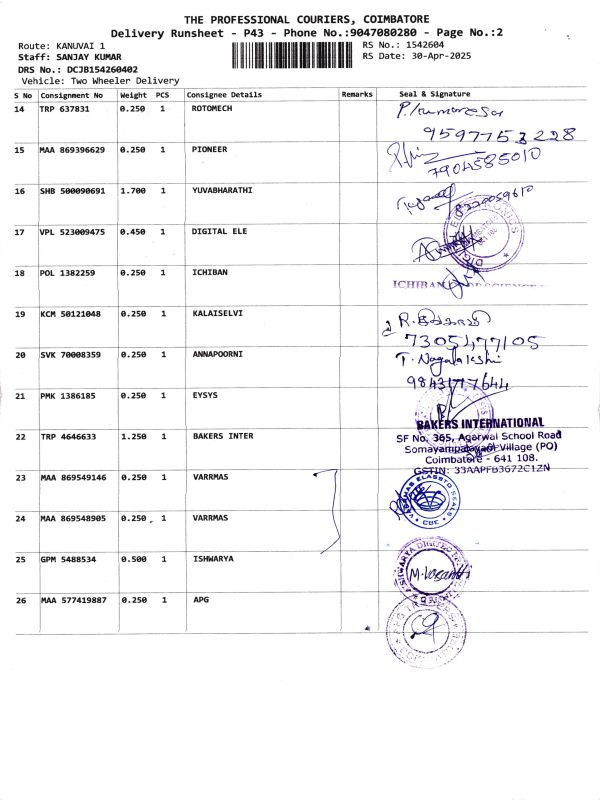 THE PROFESSIONAL COURIERS, COIMBATORE
Delivery Runsheet - P43 - Phone No.:9047080280 - Page No.:2
Route: KANUVAI 1
RS No.: 1542604
Staff: SANJAY KUMAR
RS Date: 30-Apr-2025
DRS No.: DCJB154260402
Vehicle: Two Wheeler Delivery
S No Consignment No Weight PCS Consignee Details Remarks Seal & Signature
14 TRP 637831 0.250 1 ROTOMECH
15 MAA 869396629 0.250 1 PIONEER
7904585010
16 SHB 500090691 1.700 1 YUVABHARATHI
17 VPL 523009475 0.450 1 DIGITAL ELE
18 POL 1382259 0.250 1 ICHIBAN
ICHIBAN
19 KCM 50121048 0.250 1 KALAISELVI
R.
7305477105
20 SVK 70008359 0.250 1 ANNAPOORNI
T. Nagalakshi
21 PMK 1386185 0.250 1 EYSYS
22 TRP 4646633 1.250 1 BAKERS INTER
BAKERS INTERNATIONAL
SF No. 365, Agarwal School Road
Somayampalayam Village (PO)
Coimbatore - 641 108.
GSTIN: 33AAPFB3672C1ZN
23 MAA 869549146 0.250 1 VARRMAS
24 MAA 869548905 0.250 1 VARRMAS
CBE
25 GPM 5488534 0.500 1 ISHWARYA
M. Vasanthi
26 MAA 577419887 0.250 1 APG